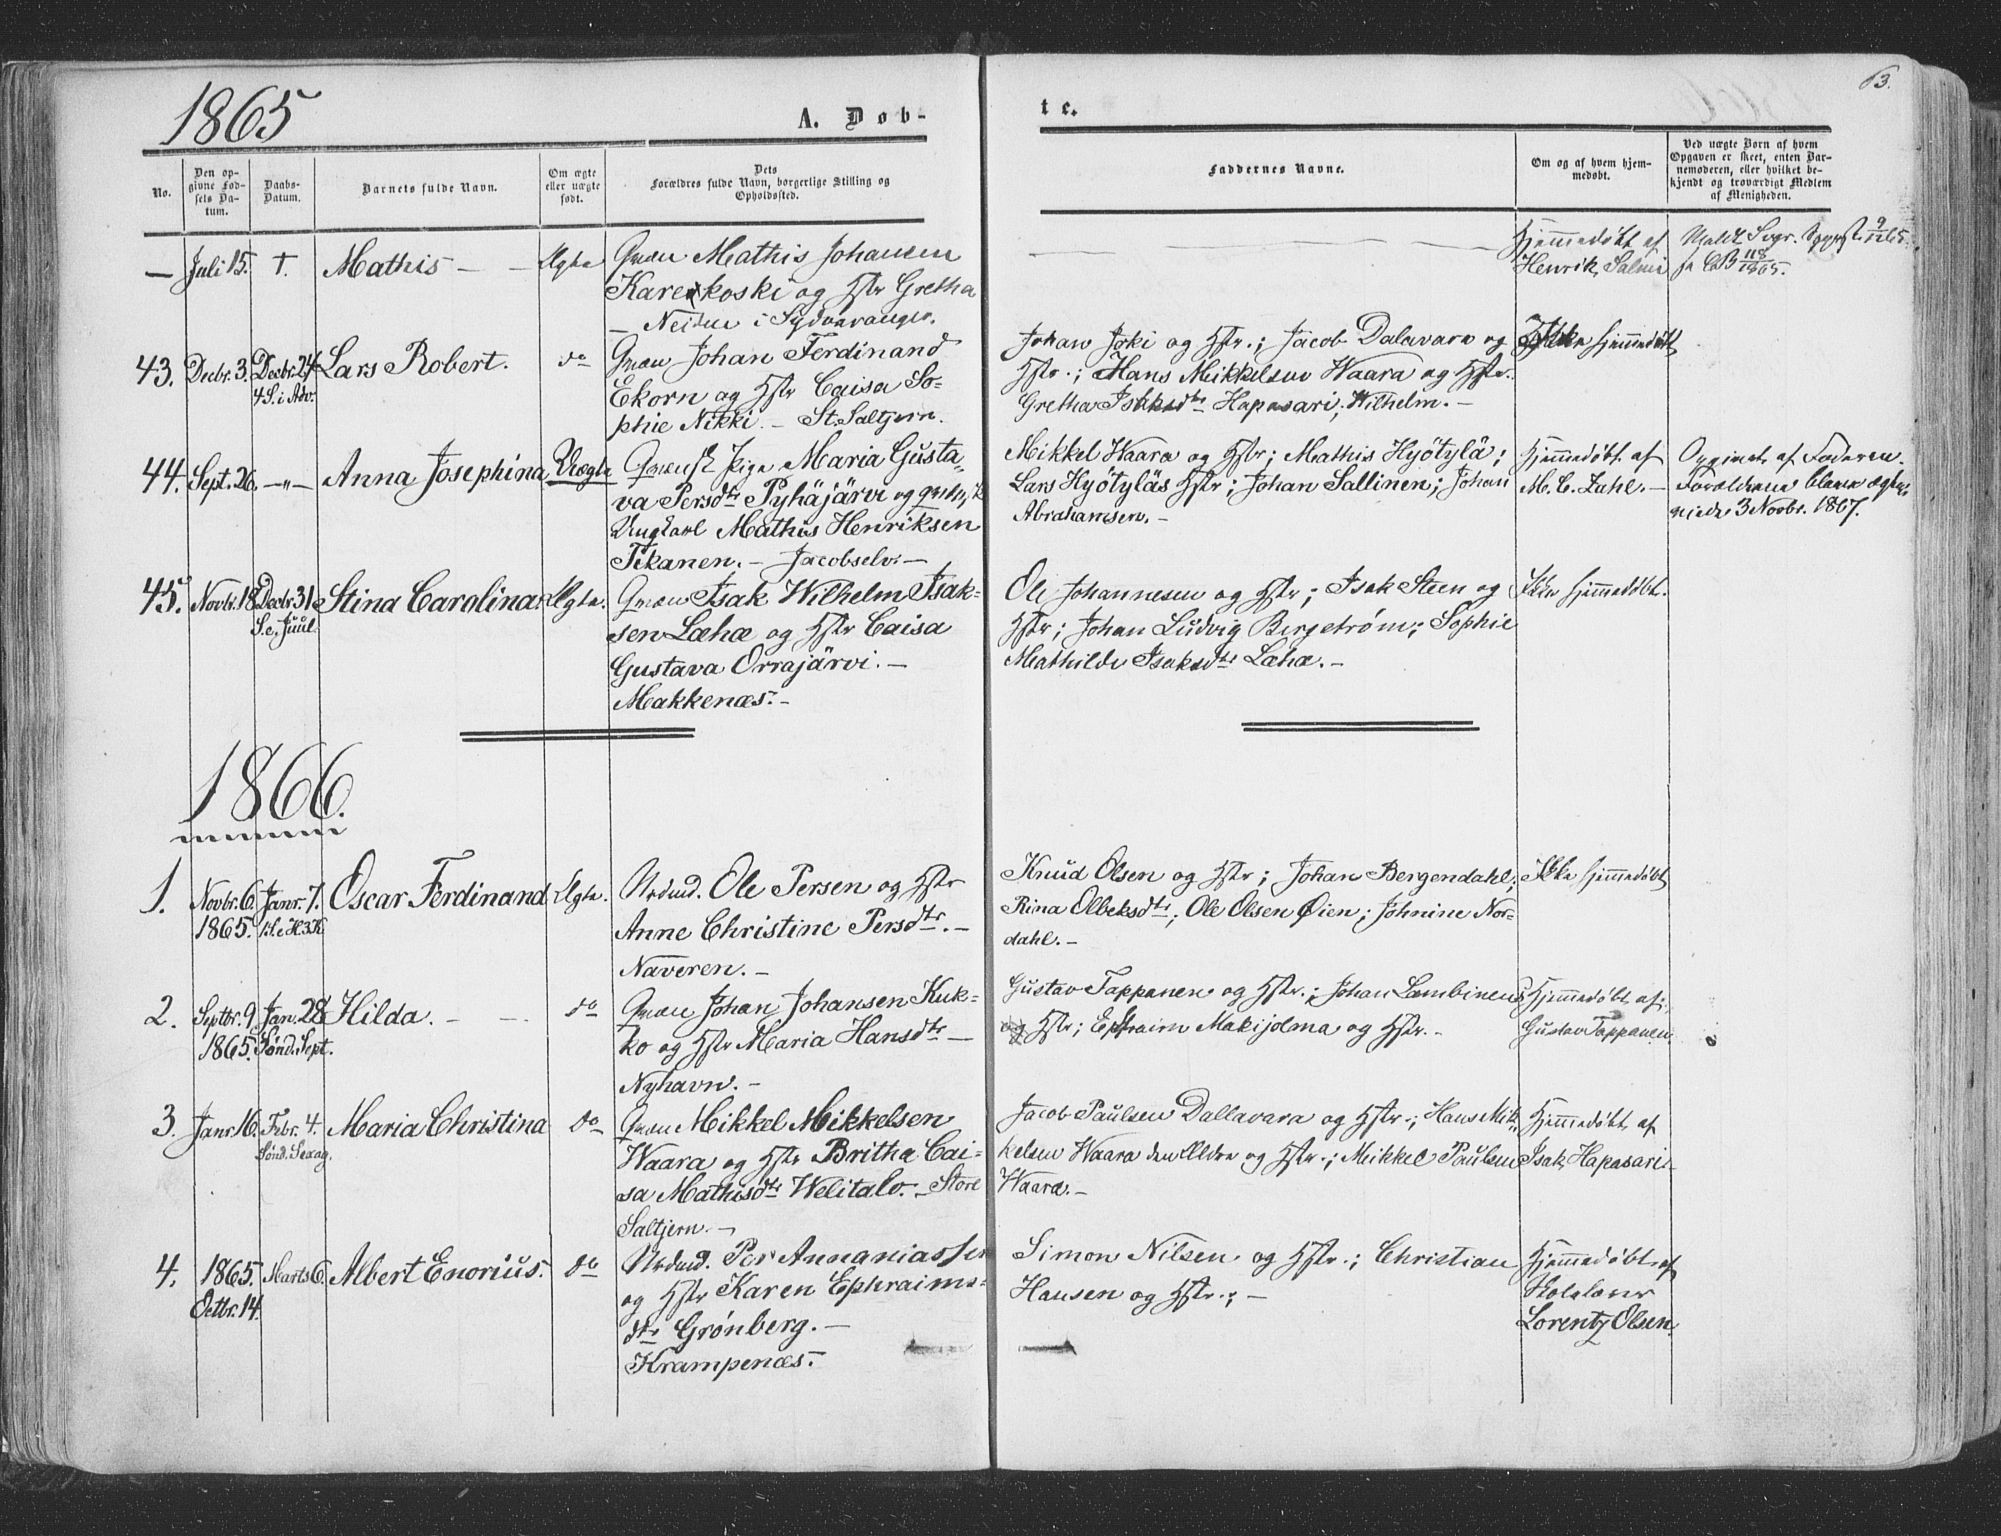 1865
A. Døb-
te.
63.
No.
Den op-
givne Fød-
sels Da-
tum.
Daabs-
Datum.
Barnets fulde Navn.
Om ægte
eller uægte
født.
Dets
Forældres fulde Navn, borgerlige Stilling og
Opholdssted.
Faddernes Navne.
Om og af hvem hjem-
medøbt.
Ved uægte Børn af hvem
Opgaven er skeet, enten Bar-
nemoderen, eller hvilket be-
kjendt og troværdigt Medlem
af Menigheden.
— Juli 15. †. Mathis — — Ægte
Qvæn Mathis Johansen
Karekoski og Hstr Gretha
— Neiden i Sydvaranger.
Hjemmedøbt af
Henrik Salmi
43. Decbr. 3. Decbr. 24
4 S. i Adv.
Lars Robert. do
Qvæn Johan Ferdinand
Ekorn og Hstr Caisa So-
phie Nikki. — St. Saltjern.
Johan Joki og Hstr.; Jacob Dalavara og
Hstr.; Hans Mikkelsen Waara og Hstr.
Gretha Isaksdtr Hapasari; Wilhelm. —
Ikke hjemmedøbt
44. Sept. 26. —"— Anna Josephina Uægte
Qvænsk Pige Maria Gusta-
va Persdtr Pyhäjärvi og qvænsk
Ungkarl Mathis Henriksen
Pikanen. — Jacobselv. —
Mikkel Waara og Hstr; Mathis Hyötylä;
Lars Hyötyläs Hstr; Johan Sallinen; Johan
Abrahamsen. —
Hjemmedøbt af
M. C. Zahl. —
Opgivet af Faderen.
Forældrene bleve ægte-
viede 3 Novbr. 1867.
45. Novbr. 18 Decbr. 31
S. e. Juul.
Stina Carolina Ægte.
Qvæn Isak Wilhelm Isak-
sen Læhæ og Hstr Caisa
Gustava Orrajärvi. —
Makkenæs. —
Ole Johannesen og Hstr; Isak Steen og
Hstr; Johan Ludvig Bergstrøm; Sophie
Mathilde Isaksdtr Læhæ. —
Ikke hjemmedøbt.
1866.
1. Novbr. 6.
1865.
Janr. 7.
1 S. e. H. 3 K.
Oscar Ferdinand Ægte.
Nrdmd. Ole Persen og Hstr
Anne Christine Persdtr. —
Naveren. —
Knud Olsen og Hstr; Johan Bergendahl;
Rina Olbeksdtr; Ole Olsen Øien; Johnine Nor-
dahl. —
Ikke hjemmedøbt
2. Septbr. 9
1865.
Jan. 28
Sønd. Sept.
Hilda. — — do
Qvæn Johan Johansen Kuk-
ko og Hstr Maria Hansdtr —
Nyhavn. —
Gustav Tappanen og Hstr.; Johan Lambinen
og Hstr; Ephraim Makijolma og Hstr. —
Hjemmedøbt af
Gustav Tappanen.
3. Janr. 16. Febr. 4.
Sønd. Sexag.
Maria Christina do
Qvæn Mikkel Mikkelsen
Waara og Hstr Britha Cai-
sa Mathisdtr Welitalo. — Store
Saltjern. —
Jacob Paulsen Dallavara og Hstr.; Hans Mik-
kelsen Waara den Ældre og Hstr.; Mikkel Paulsen
Waara. —
Hjemmedøbt af
Isak Hapasari —
4. 1865.
Octbr. 14.
Marts 6. Albert Enorius. do
Nrdmd. Per Annaniassen
og Hstr Karen Ephraims-
dtr Grønberg. —
Krampenæs. —
Simon Nilsen og Hstr.; Christian
Hansen og Hstr.; —
Hjemmedøbt af
Skolelærer
Lorentz Olsen.